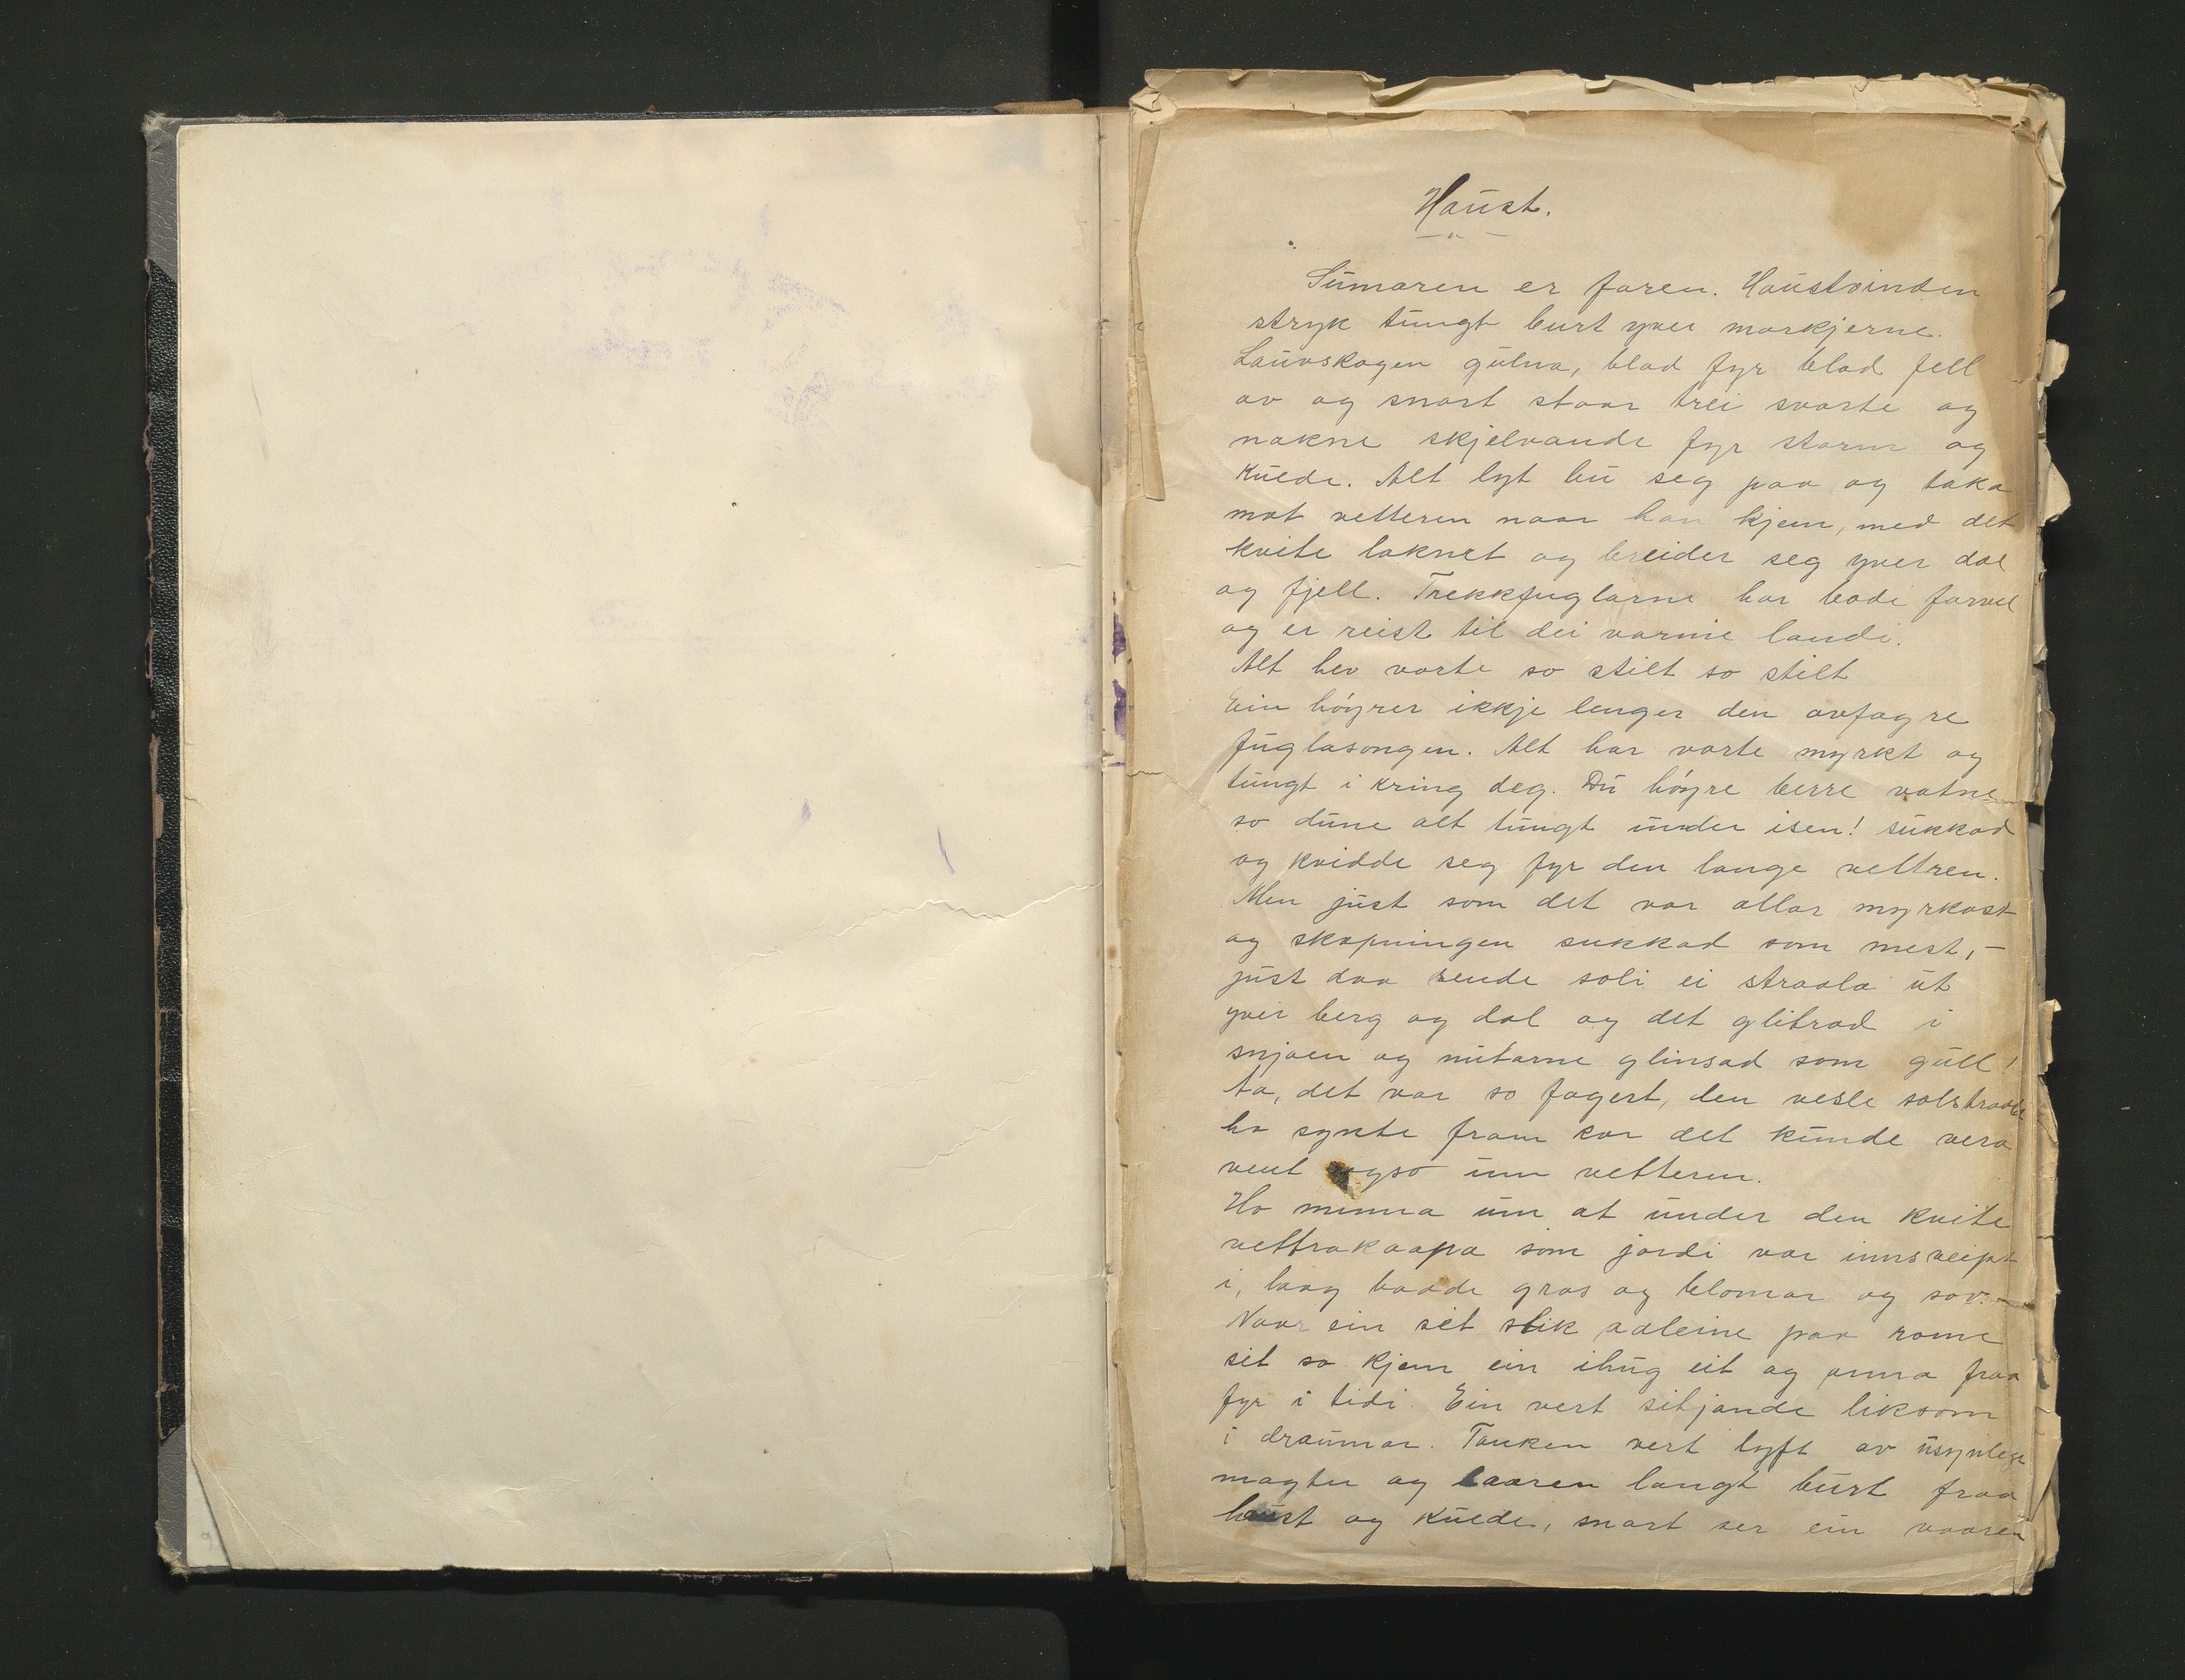 Haust.
Sumaren er faren. Haustvinden
stryk tungt burt yver markjerne.
Lauvskogen gulna, blad fyr blad fell
av og snart staar trei svarte og
nakne skjelvande fyr storm og
kulde. Alt lyt bu seg paa og taka
mot vetteren naar han kjem, med det
kvite laknet og breider seg yver dal
og fjell. Trekkfuglarne har bode farvel
og er reist til dei varme landi.
Alt hev vorte so stilt so stilt
Ein höyrer ikkje lenger den ovfagre
fuglasongen. Alt har vorte myrkt og
tungt i kring deg. Du höyre berre vatne
so dune alt tungt under isen! sukkad
og kvidde seg fyr den lange vettren.
Men just som det var allar myrkast
og skapningen sukkad som mest, –
just daa sende soli ei straala ut
yver berg og dal og det glitrad i
snjoen og nutarne glinsad som gull!
Aa, det var so fagert, den vesle solstraala
ho synte fram kor det kunde vera
vent ogso um vetteren.
Ho minna um at under den kvite
vettrakaapa som jordi var innsveipt
i, laag baade gras og blomar og sov. –
Naar ein sit slik aaleine paa rome
sit so kjem ein ihug eit og anna fraa
fyr i tidi. Ein vert sitjande liksom
i draumar. Tanken vert lyft av usynlege
magter og baaren langt burt fraa
haust og kulde, snart ser ein vaaren